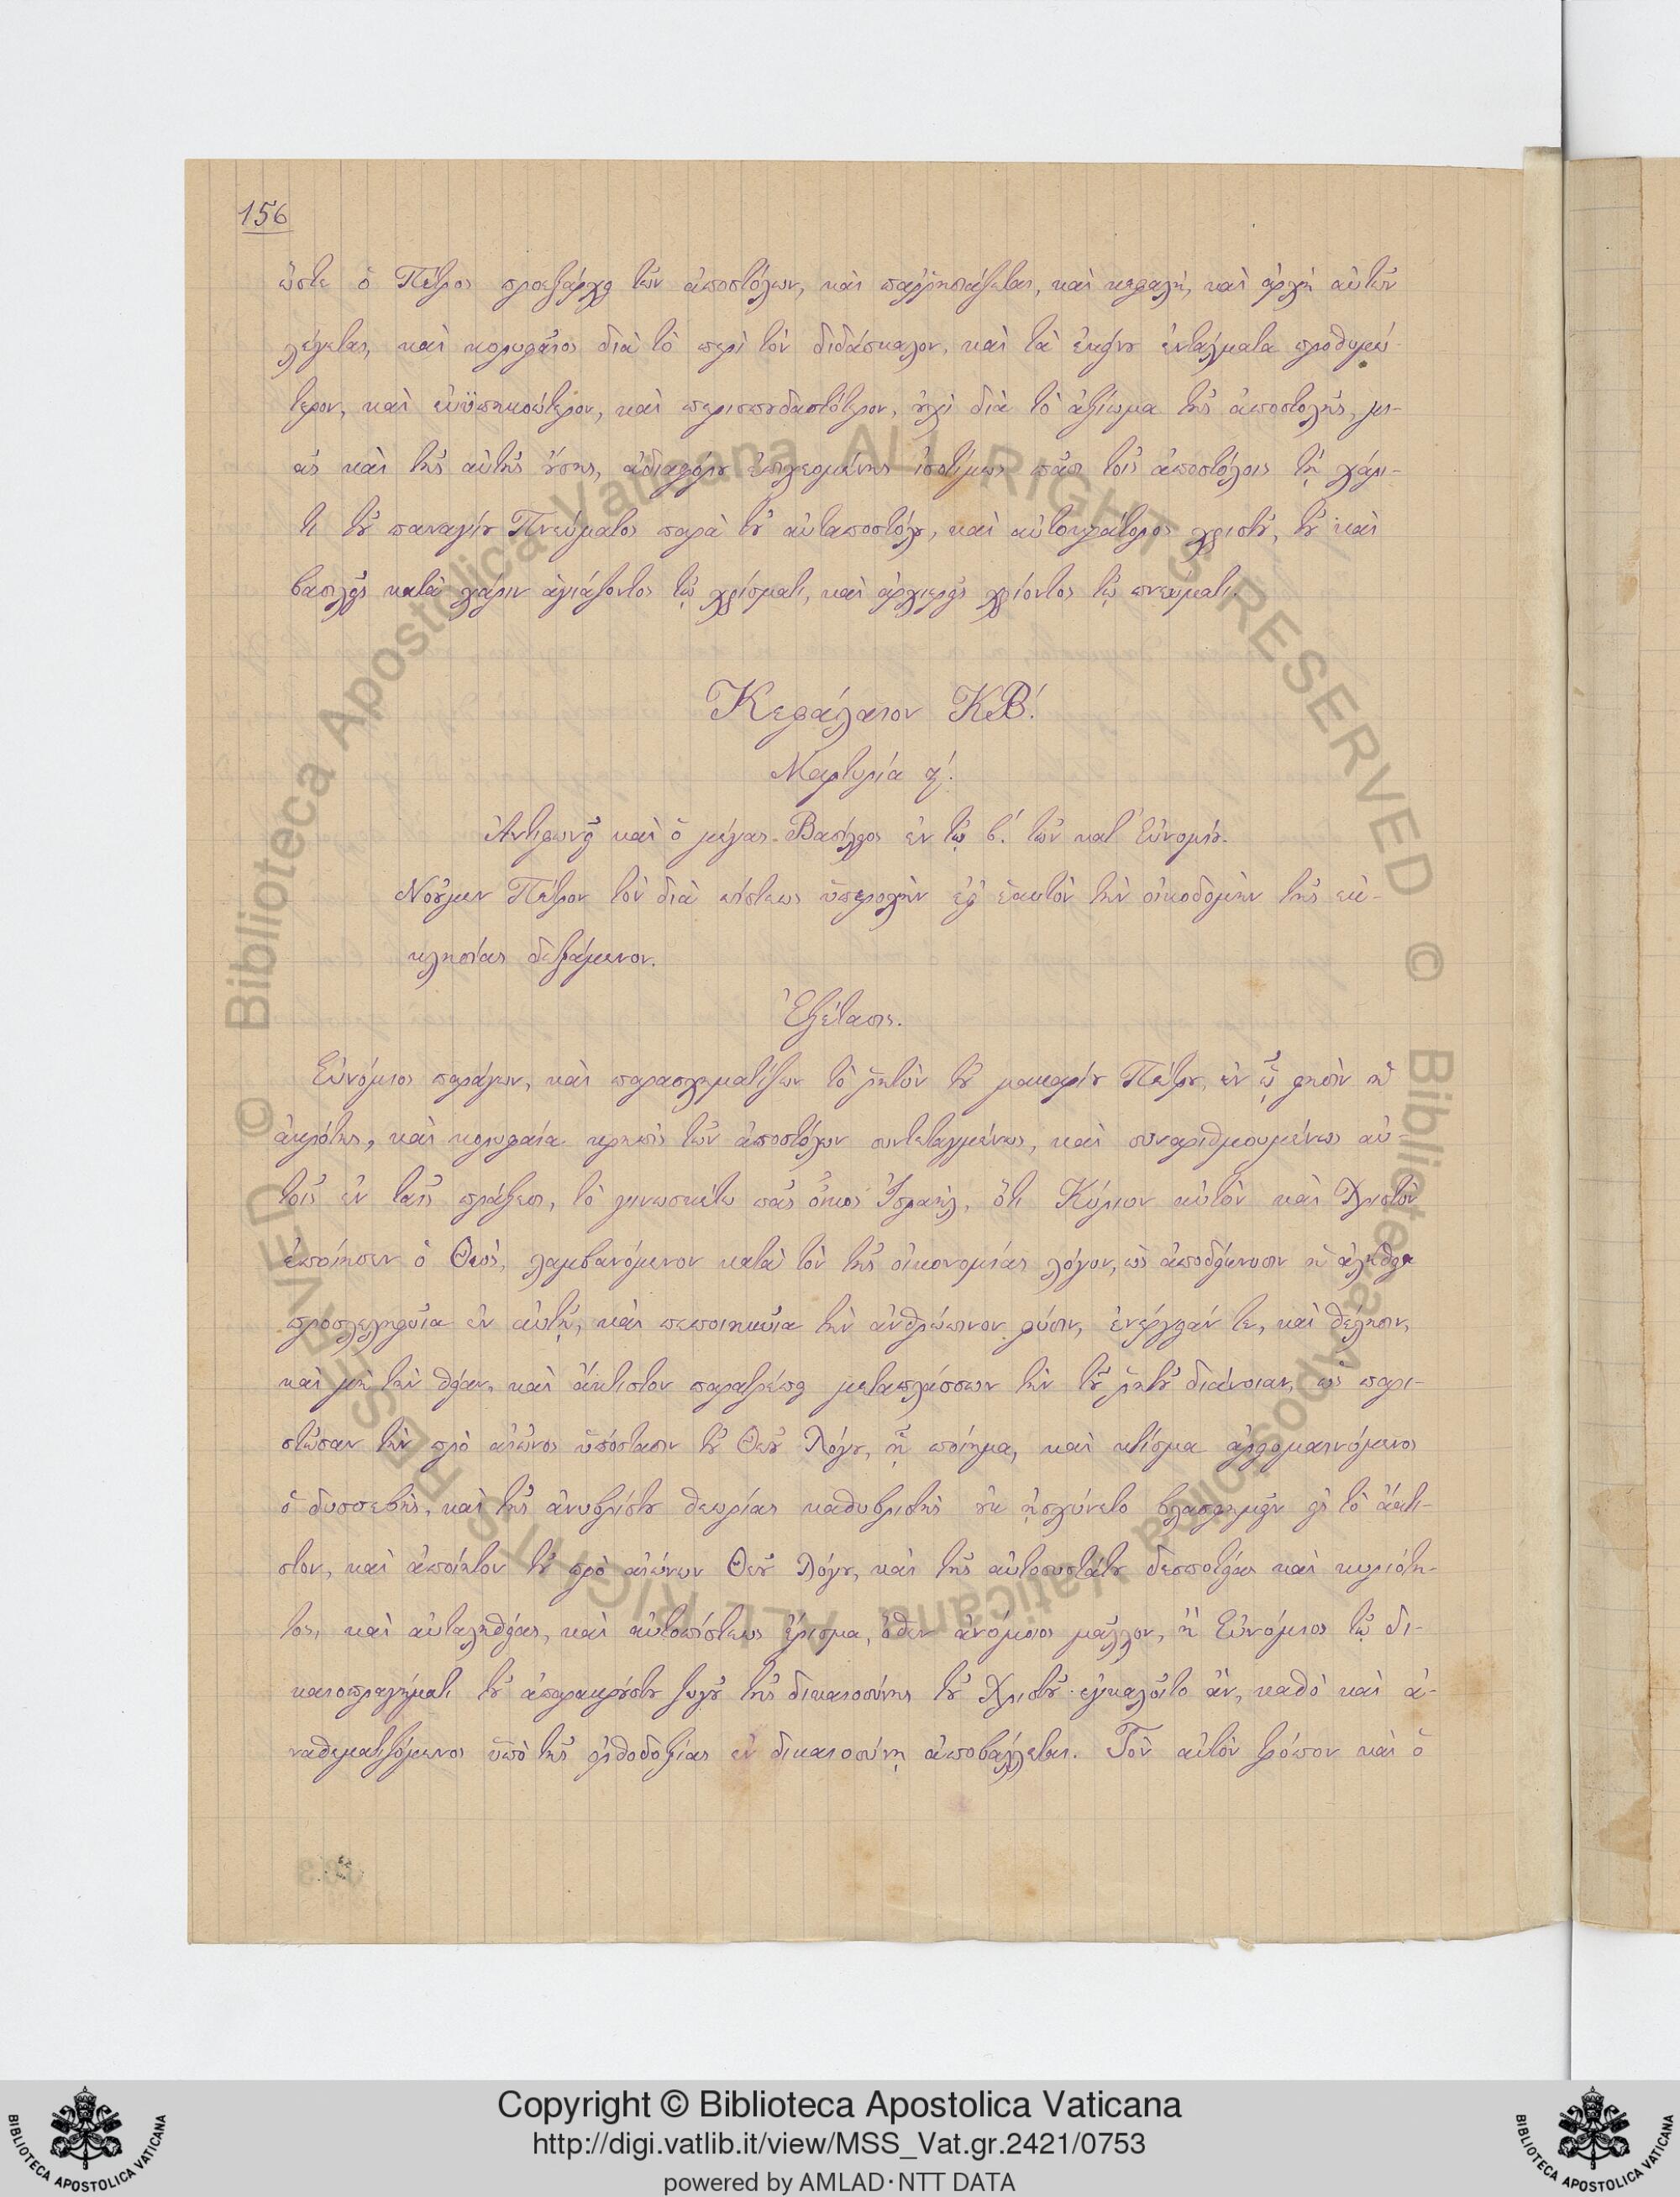 156
ὥστε ὁ Πέτρος προεξάρχει τῶν ἀποστόλων, καὶ παῤῥησιάζεται, καὶ κεφαλὴ, καὶ ἀρχὴ αὐτῶν
λέγεται, καὶ κορυφαῖος διὰ τὸ περὶ τὸν διδάσκαλον, καὶ τὰ ἐκείνου ἐντάλματα προθυμώ-
τερον, καὶ εὐϋπηκοώτερον, καὶ περισπουδαστότερον, οὐχὶ διὰ τὸ ἀξίωμα τῆς ἀποστολῆς, μι-
ᾶς καὶ τῆς αὐτῆς οὔσης, ἀδιαφόρου ἐπιχεομένης ἰσοτίμως πᾶσι τοῖς ἀποστόλοις τῇ χάρι-
τι τοῦ παναγίου Πνεύματος παρὰ τοῦ αὐταποστόλου, καὶ αὐτοκράτορος χριστοῦ, τοῦ καὶ
βασιλεῖς κατὰ χάριν ἁγιάζοντος τῷ χρίσματι, καὶ ἀρχιερεῖς χρίοντος τῷ πνεύματι.
Κεφάλαιον ΚΒ΄.
Μαρτυρία α΄.
Ἀντιφωνεῖ καὶ ὁ μέγας Βασίλειος ἐν τῷ β΄. τῶν κατ' Εὐνομίου.
Νοοῦμεν Πέτρον τὸν διὰ πίστεως ὑπεροχὴν ἐφ' ἑαυτὸν τὴν οἰκοδομὴν τῆς ἐκ-
κλησίας δεξάμενον.
Ἐξέτασις.
Εὐνόμιος παράγων, καὶ παρασχηματίζων τὸ ῥητὸν τοῦ μακαρίου Πέτρου, ἐν ᾧ φησὶν ἡ
ἀκρότης, καὶ κορυφαία κρηπὶς τῶν ἀποστόλων συντεταγμένως, καὶ συναριθμουμένως αὐ-
τοῖς ἐν ταῖς πράξεσι, τὸ γινωσκέτω πᾶς οἶκος Ἰσραὴλ, ὅτι Κύριον αὐτὸν καὶ Χριστὸν
ἐποίησεν ὁ Θεὸς, λαμβανόμενον κατὰ τὸν τῆς οἰκονομίας λόγον, ὡς ἀποδείκνυσιν ἡ ἀλήθεια
προσλεληφυῖα ἐν αὐτῇ, καὶ πεποιηκυῖα τὴν ἀνθρώπινον φύσιν, ἐνέργειάν τε, καὶ θέλησιν,
καὶ μὴ τὴν θείαν, καὶ ἄκτιστον παρατρέπει μεταπλάσσων τὴν τοῦ ῥητοῦ διάνοιαν, ὡς παρι-
στῶσαν τὴν πρὸ αἰῶνος ὑπόστασιν τοῦ Θεοῦ Λόγου, ᾗ ποίημα, καὶ κτίσμα
ὁ δυσσεβὴς, καὶ τῆς ἀνυβρίστου θεωρίας καθυβριστὴς οὐκ ᾐσχύνετο βλασφημεῖν εἰς τὸ ἄκτι-
στον, καὶ ἀποίητον τοῦ πρὸ αἰώνων Θεοῦ Λόγου, καὶ τῆς αὐτοσυστάτου δεσποτείας καὶ κυριότη-
τος, καὶ αὐταληθείας, καὶ αὐτοπίστεως ἔρεισμα, ὅθεν ἀνόμοιος μᾶλλον, ἢ Εὐνόμιος τῷ δι-
καιοπραγήματι τοῦ ἀπαρακρούστου ζυγοῦ τῆς δικαιοσύνης τοῦ Χριστοῦ ἐγκαλοῖτο ἂν, καθὸ καὶ ἀ-
ναθεματιζόμενος ὑπὸ τῆς ὀρθοδοξίας ἐν δικαιοσύνῃ ἀποβάλλεται. Τὸν αὐτὸν τρόπον καὶ ὁ
Copyright © Biblioteca Apostolica Vaticana
http://digi.vatlib.it/view/MSS_Vat.gr.2421/0753
powered by AMLAD·NTT DATA
BIBLIOTECA APOSTOLICA VATICANA
BIBLIOTECA APOSTOLICA VATICANA
© Biblioteca Apostolica Vaticana ALL RIGHTS RESERVED © Biblioteca Apostolica Vaticana ALL RIGHTS RESERVED